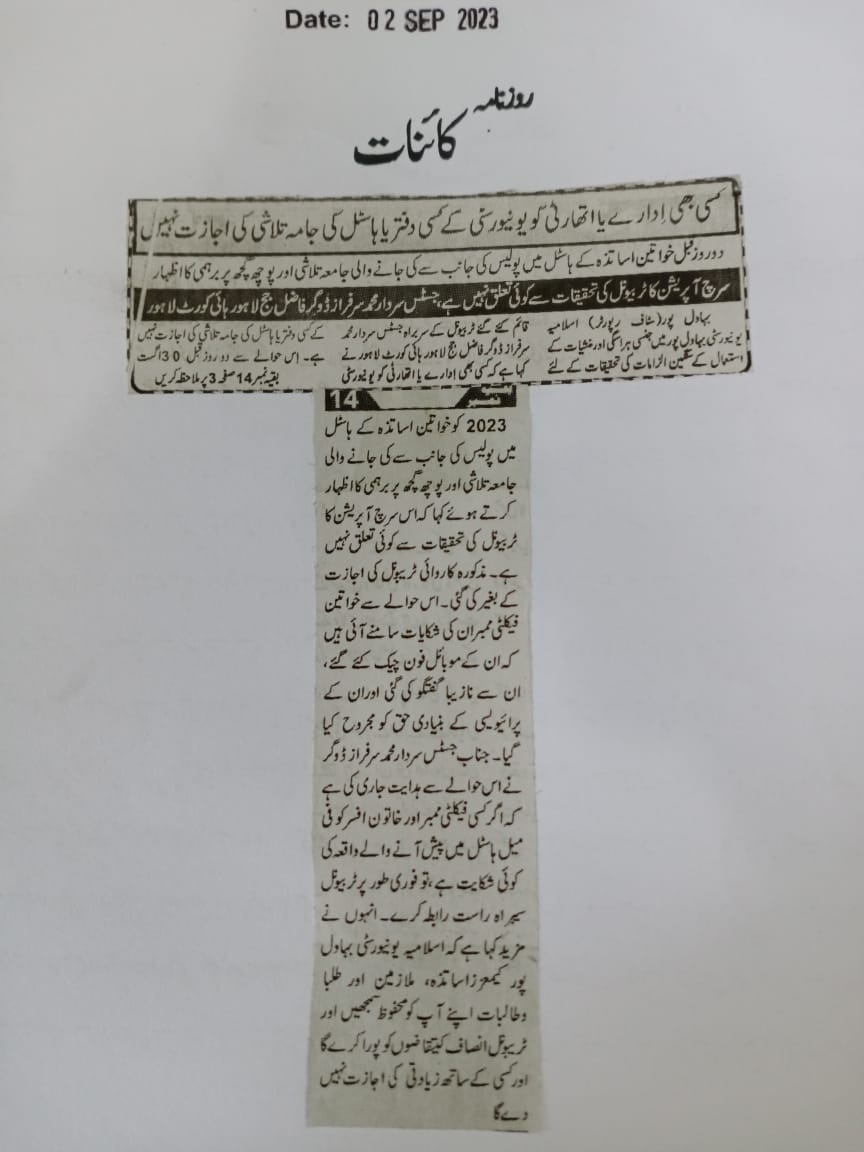 Date: 02 SEP 2023
روزنامہ
کائنات
کسی بھی ادارے یا اتھارٹی کو یونیورسٹی کے کسی دفتر یا ہاسٹل کی جامہ تلاشی کی اجازت نہیں
دو روز قبل خواتین اساتذہ کے ہاسٹل میں پولیس کی جانب سے کی جانے والی جامعہ تلاشی اور پوچھ گچھ پر برہمی کا اظہار
سرچ آپریشن کا ٹربیونل کی تحقیقات سے کوئی تعلق نہیں ہے، جسٹس سردار محمد سرفراز ڈوگر فاضل جج لاہور ہائی کورٹ لاہور
بہاول پور (سٹاف رپورٹر) اسلامیہ
یونیورسٹی بہاول پور میں جنسی ہراسگی اور منشیات کے
استعمال کے سنگین الزامات کی تحقیقات کے لئے
قائم کئے گئے ٹربیونل کے سربراہ جسٹس سردار محمد
سرفراز ڈوگر فاضل جج لاہور ہائی کورٹ لاہور نے
کہا ہے کہ کسی بھی ادارے یا اتھارٹی کو یونیورسٹی
کے کسی دفتر یا ہاسٹل کی جامہ تلاشی کی اجازت نہیں
ہے۔ اس حوالے سے دو روز قبل 30 اگست
بقیہ نمبر 14 صفحہ 3 پر ملاحظہ کریں
بقیہ نمبر 14
2023 کو خواتین اساتذہ کے ہاسٹل
میں پولیس کی جانب سے کی جانے والی
جامعہ تلاشی اور پوچھ گچھ پر برہمی کا اظہار
کرتے ہوئے کہا کہ اس سرچ آپریشن کا
ٹربیونل کی تحقیقات سے کوئی تعلق نہیں
ہے۔ مذکورہ کاروائی ٹریبونل کی اجازت
کے بغیر کی گئی۔ اس حوالے سے خواتین
فیکلٹی ممبران کی شکایات سامنے آئی ہیں
کہ ان کے موبائل فون چیک کئے گئے،
ان سے نازیبا گفتگو کی گئی اور ان کے
پرائیویسی کے بنیادی حق کو مجروح کیا
گیا۔ جناب جسٹس سردار محمد سرفراز ڈوگر
نے اس حوالے سے ہدایت جاری کی ہے
کہ اگر کسی فیکلٹی ممبر اور خاتون افسر کو فی
میل ہاسٹل میں پیش آنے والے واقعہ کی
کوئی شکایت ہے، تو فوری طور پر ٹربیونل
سیراہ راست رابطہ کرے۔ انہوں نے
مزید کہا ہے کہ اسلامیہ یونیورسٹی بہاول
پور کیمعزز اساتذہ، ملازمین اور طلبا
وطالبات اپنے آپ کو محفوظ سمجھیں اور
ٹربیونل انصاف کیتقاضوں کو پورا کرے گا
اور کسی کے ساتھ زیادتی کی اجازت نہیں
دے گا